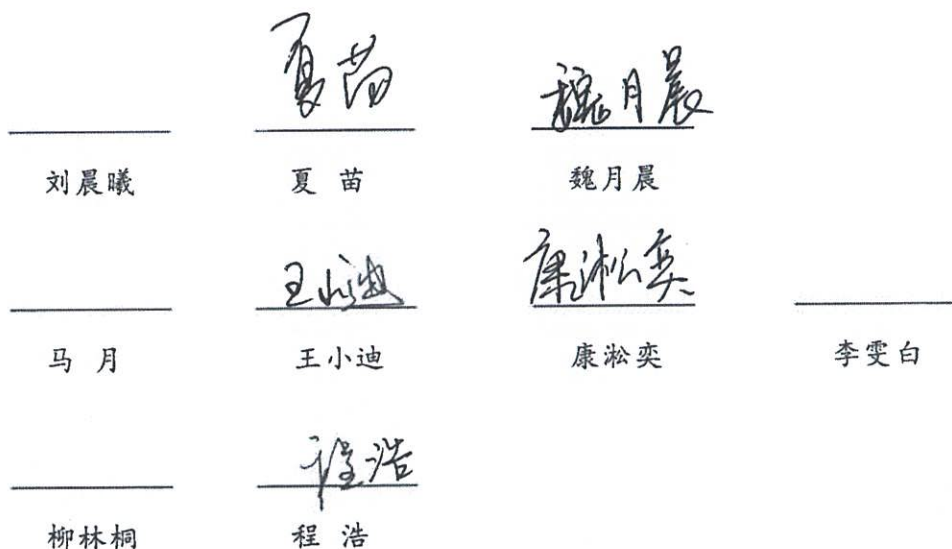 夏苗 魏月晨
刘晨曦 夏 苗 魏月晨
王小迪 康淞奕
马 月 王小迪 康淞奕 李雯白
程浩
柳林桐 程 浩